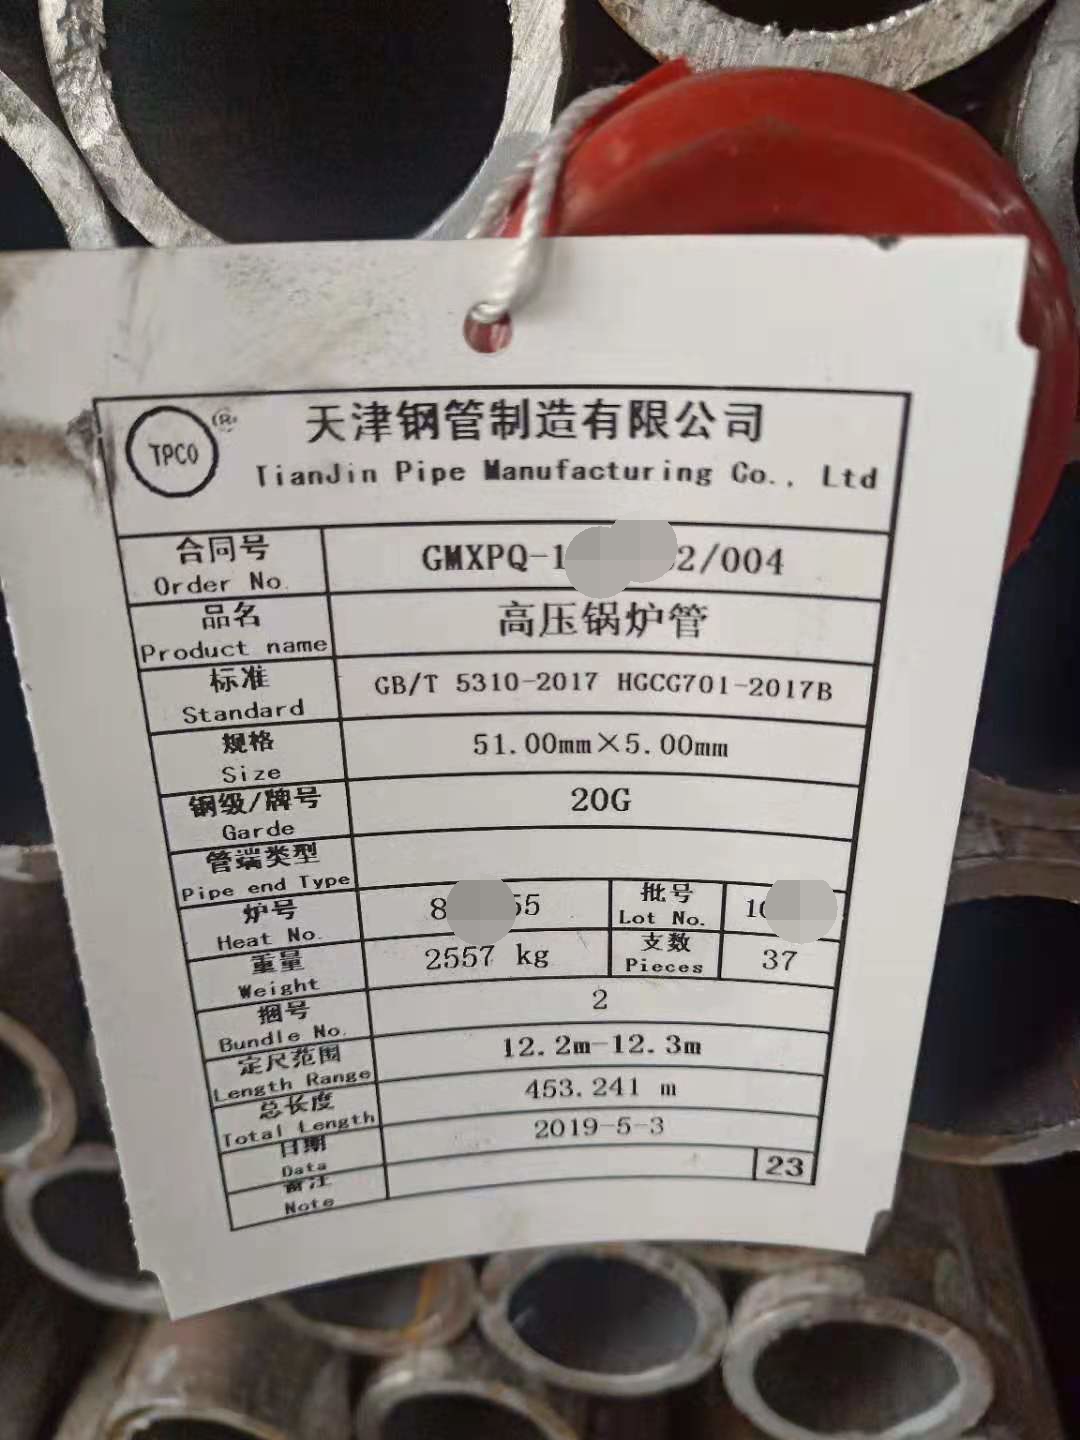 TPCO ®
天津钢管制造有限公司
TianJin Pipe Manufacturing Co., Ltd
合同号
Order No.
GMXPQ-1 2/004
品名
Product name
高压锅炉管
标准
Standard
GB/T 5310-2017 HGCG701-2017B
规格
Size
51.00mm×5.00mm
钢级/牌号
Garde
20G
管端类型
Pipe end Type
炉号
Heat No.
8 55
批号
Lot No.
10
重量
Weight
2557 kg
支数
Pieces
37
捆号
Bundle No.
2
定尺范围
Length Range
12.2m-12.3m
总长度
Total Length
453.241 m
日期
Data
2019-5-3
备注
Note
23